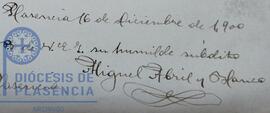 Plasencia 16 de Diciembre de 1900
de V. E. I. su humilde subdito
Miguel Abril y
DIÓCESIS DE
PLASENCIA
ARCHIVO